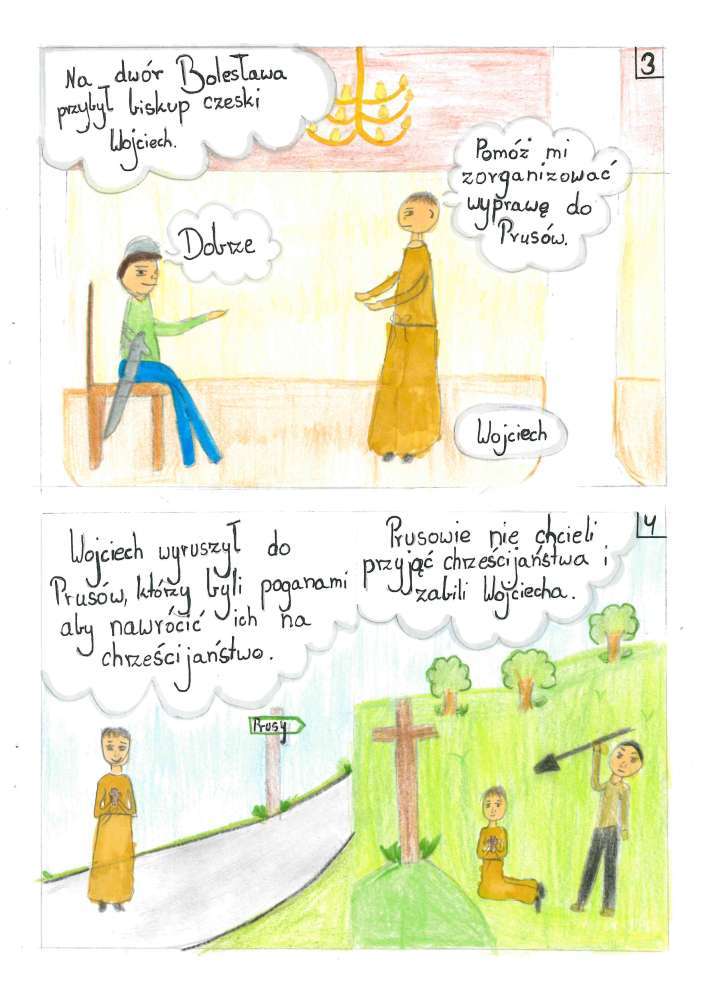 3
Na dwór Bolesława
przybył biskup czeski
Wojciech.
Pomóż mi
zorganizować
wyprawę do
Prusów.
Dobrze
Wojciech
4
Wojciech wyruszył do
Prusów, którzy byli poganami
aby nawrócić ich na
chrześcijaństwo.
Prusowie nie chcieli
przyjąć chrześcijaństwa i
zabili Wojciecha.
Prusy